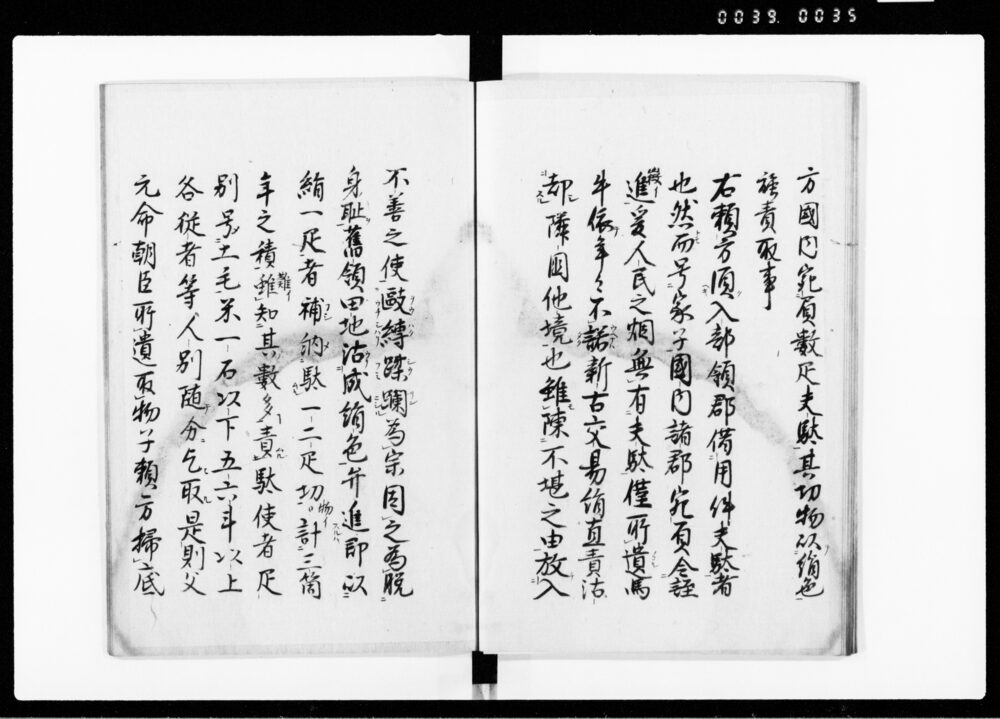 0039 0035
方國内宛負數疋夫駄其切物以絹色
強責取事
右頼方須入部領郡借用件夫駄者
也然而号家子國内諸郡宛負令誣
進爰人民之烟無有夫駄僅所遺馬
牛依年々不諧新古交易絹直責沽
却隣國他境也雖陳不堪之由放入
不善之使毆縛蹂躙為宗因之為脱
身耻舊領田地沽成絹色弁進即以
絹一疋者補納駄一二疋切物イ計三箇
年之積雖知其數多責駄使者疋
別号土毛米一石以下五六斗以上
各従者等人別随分乞取是則父
元命朝臣所遺取物子頼方掃底